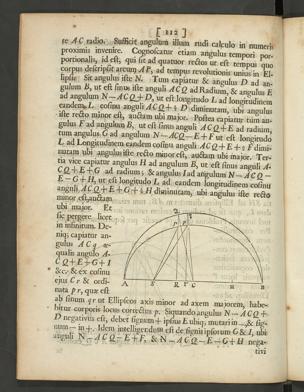 [ 112 ]
te ACradio. Sufficit angulum illum rudi calculo in numeris
proximis invenire. Cognoscatur etiam angulus tempori pro-
portionalis, id est, qui sit ad quatuor rectos ut est tempus quo
corpus descripsit arcum AP, ad tempus revolutionis unius in El-
lipsi. Sit angulus iste N. Tum capiatur & angulus D ad an-
gulum B, ut est sinus iste anguli ACQ ad Radium, & angulus E
ad angulum N—ACQ+D, ut est longitudo L ad longitudinem
eandem L cosinu anguli diminutam, ubi angulus
iste recto minor est, auctam ubi major. Postea capiatur tum an-
gulus F ad angulum B, ut est sinus anguli ACQ+E ad radium,
tum angulus G ad angulum N—ACQ—E+F ut est longitudo
L ad Longitudinem eandem cosinu anguli diminu-
tam ubi angulus iste recto minor est, auctam ubi major. Ter-
tia vice capiatur angulus H ad angulum B, ut est sinus anguli A-
CQ+E+G ad radium; & angulus I ad angulum N—ACQ—
E—G+H, ut est longitudo L ad eandem longitudinem cosinu
anguli diminutam, ubi angulus iste recto
minor est, auctam
ubi major. Et
sic pergere licet
in infinitum. De-
niq; capiatur an-
gulus ACq æ-
qualis angulo A-
CQ+E+G+I
&c. & ex cosinu
ejus Cr & ordi-
nata pr, quæ est
ab sinum qr ut Ellipseos axis minor ad axem majorem, habe-
bitur corporis locus correctus p. Siquando angulus N—ACQ+
D negativus est, debet signum + ipsius E ubiq; mutari in —, & sig-
num — in +. Idem intelligendum est de signis ipsorum G & I, ubi
anguli N—ACQ—E+F, & N—ACQ—E—G+H nega-
tivi
A S R F C H B